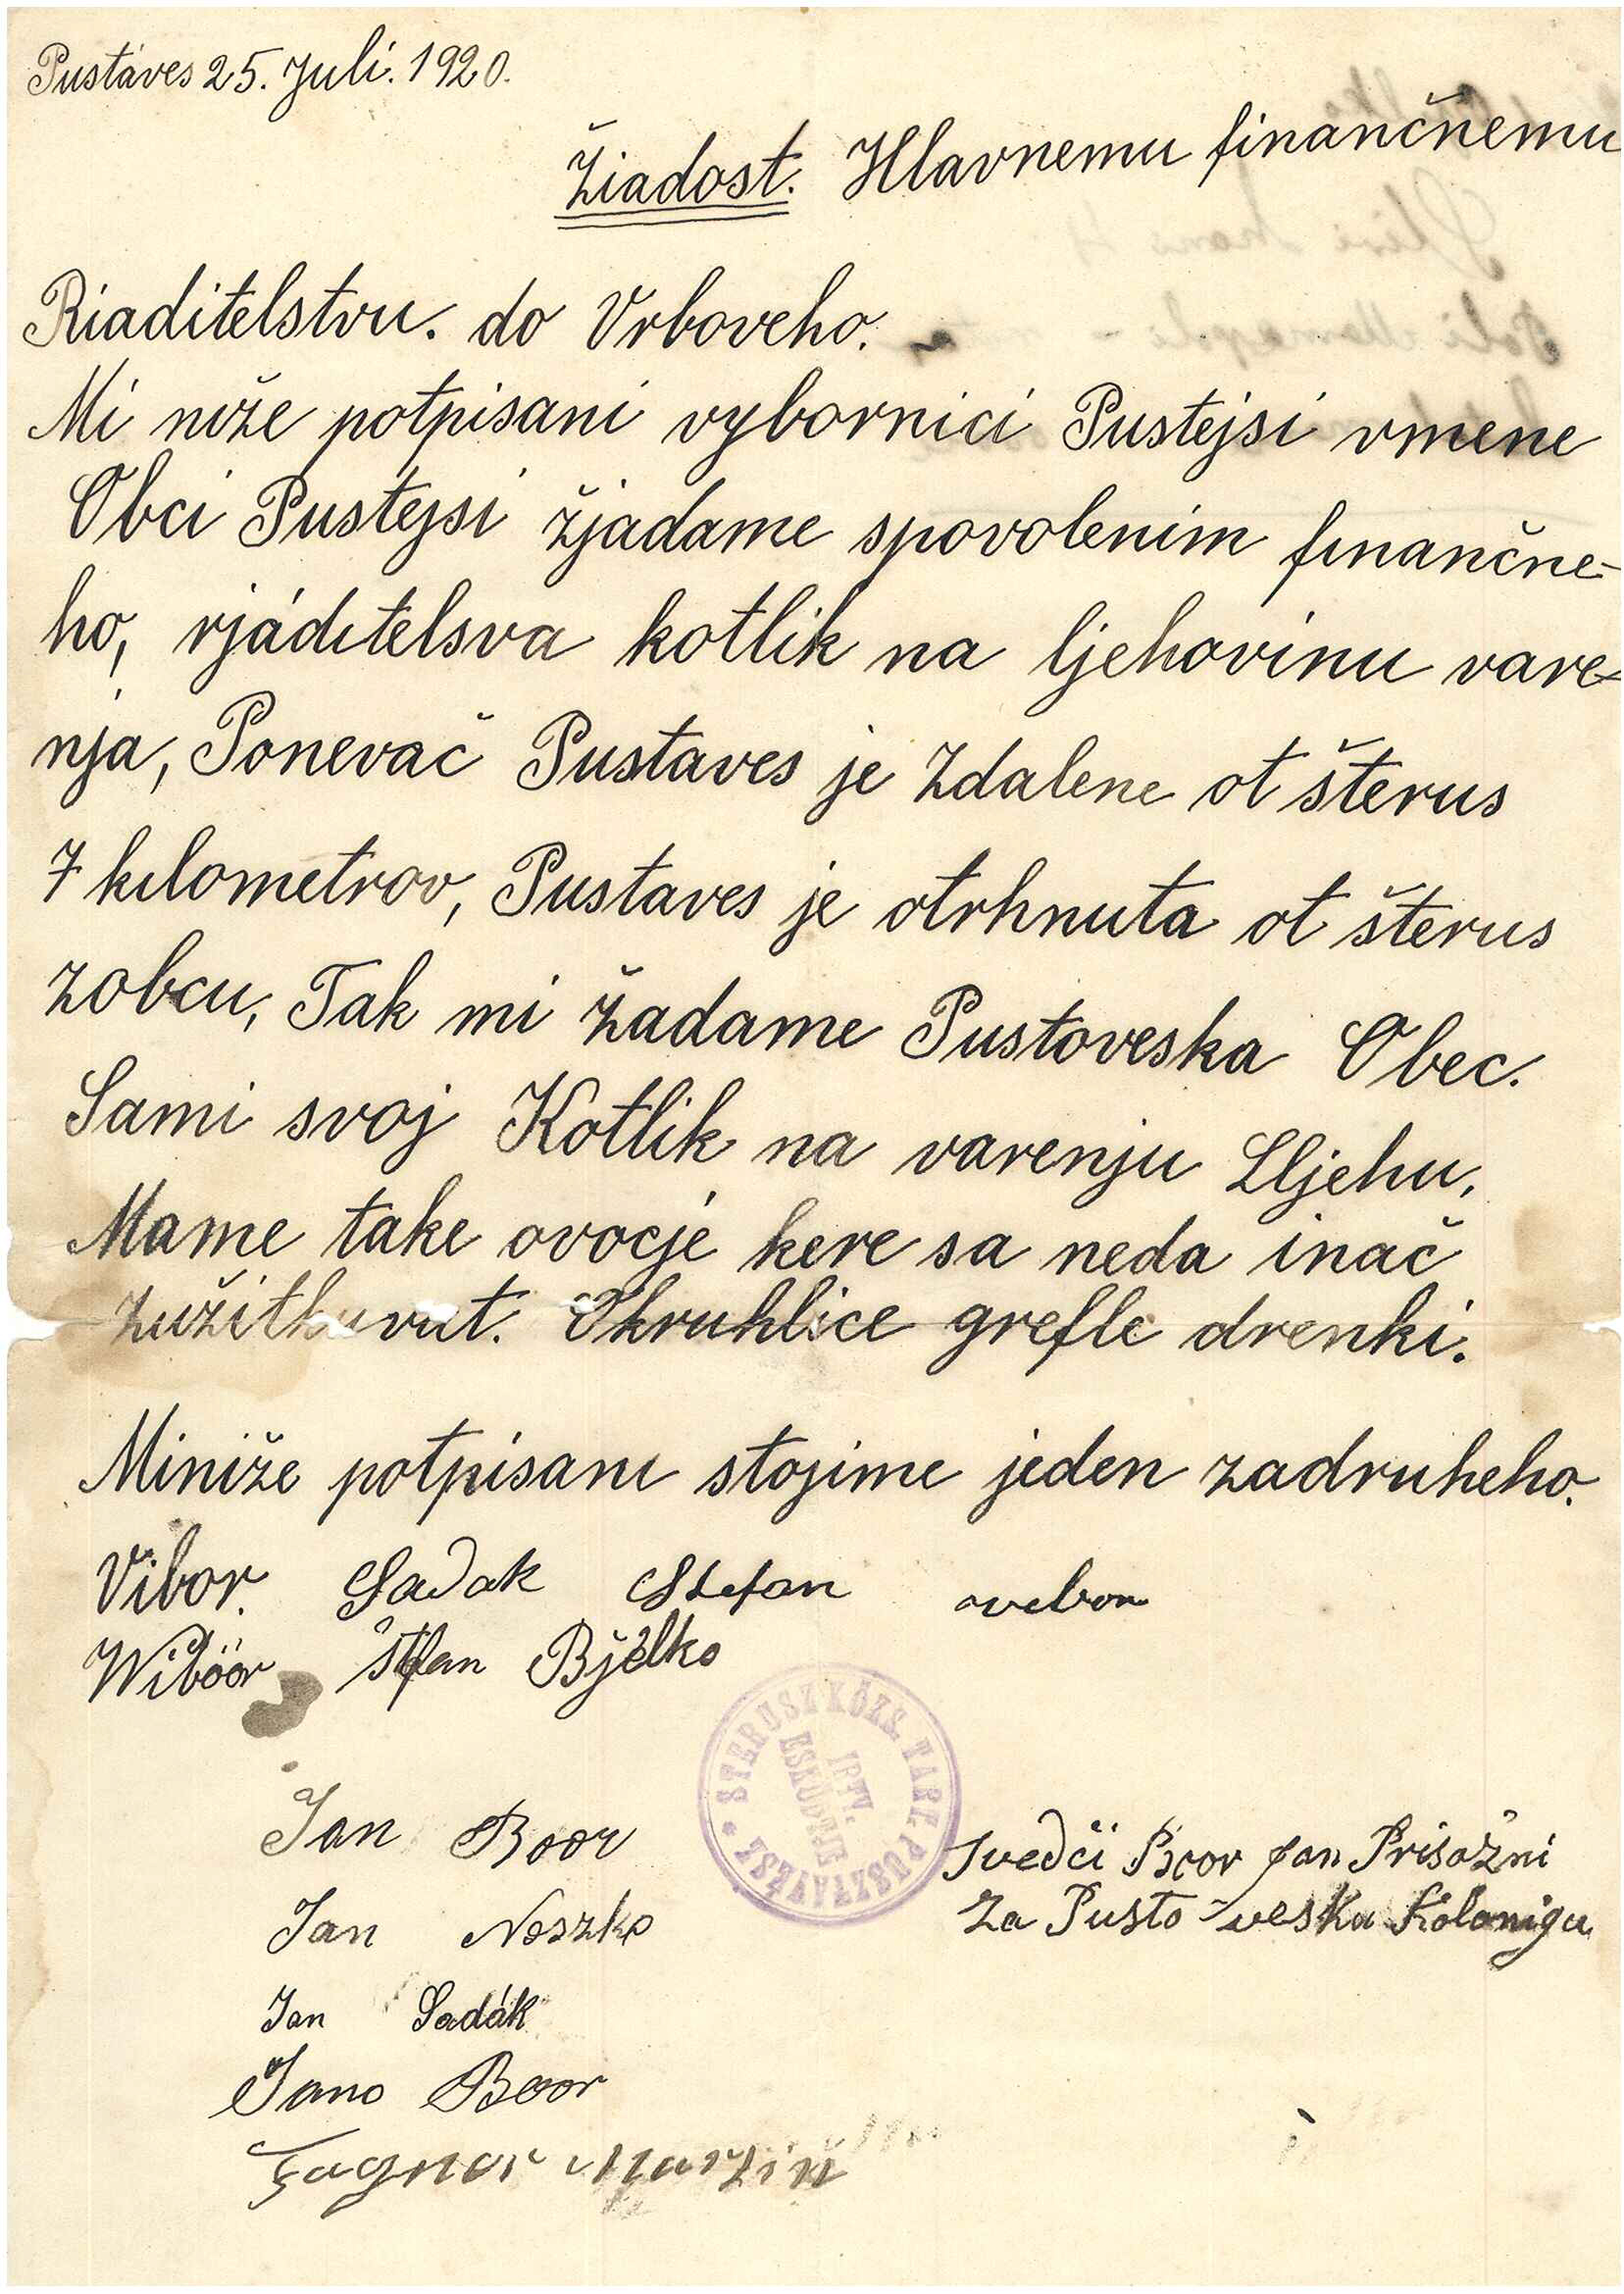 Pustáves 25. Juli. 1920.
Žiadost. Hlavnemu finančnemu
Riaditelstvu. do Vrboveho.
Mi niže potpisani vybornici Pustejsi vmene
Obci Pustejsi žjadame spovolenim finančne-
ho, rjáditelsva kotlik na ljehovinu vare-
nja, Ponevač Pustaves je Zdalene ot šterus
7 kilometrov, Pustaves je otrhnuta ot šterus
zobcu, Tak mi žadame Pustoveska Obec.
Sami svoj Kotlik na varenju Lljehu,
Mame take ovocjé kere sa neda inač
zužitkuvat. Okruhlice grefle drenki.
Miniže potpisani stojime jeden zadruheho.
Vibor. Sadak Stefan
Wiböor Štfan Bjélko
STERUSZ KÖZS. TART. PUSZTAVÁSZ
IRTV.
ESKÜDTJE
Jan Boor
Svedči Boor Jan Prisažni
Jan Noszko
Za Pusto-vesku Kolonigu
Jan Sadák
Jano Boor